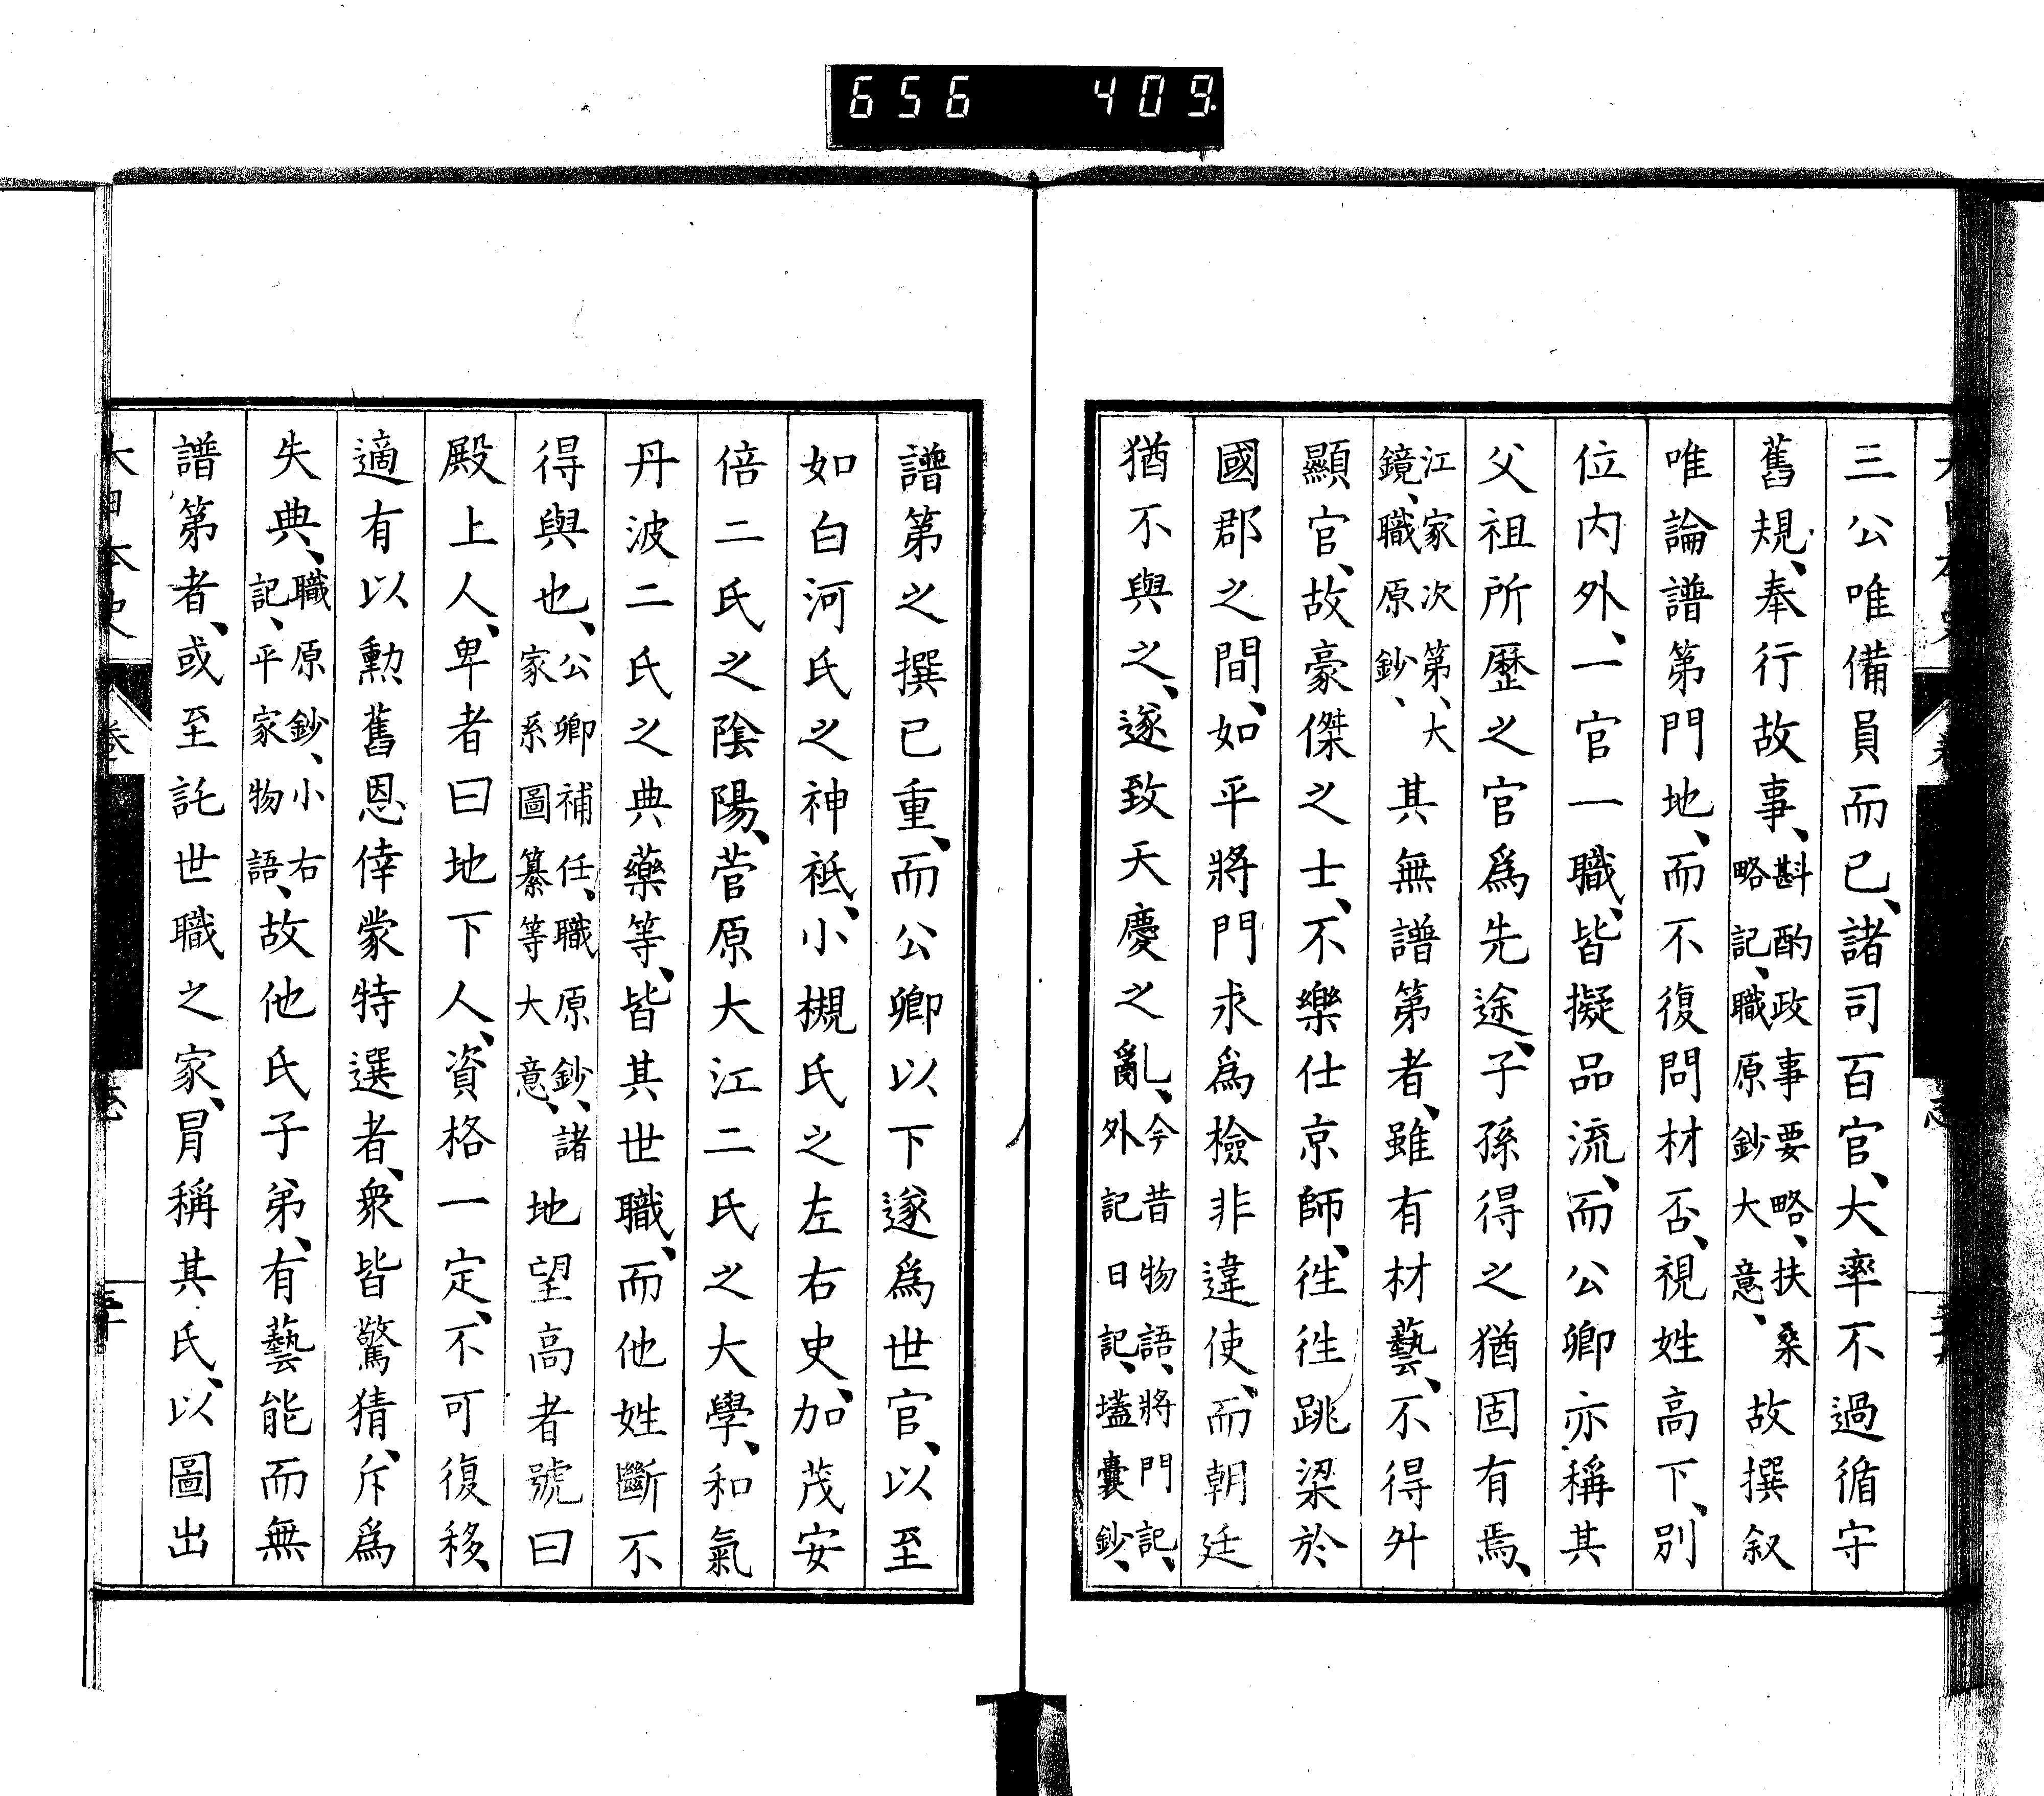 656 409
三公唯備員而已、諸司百官、大率不過循守
舊規、奉行故事、斟酌政事要略、扶桑略記、職原鈔大意、故撰叙
唯論譜第門地、而不復問材否、視姓高下、別
位内外、一官一職、皆擬品流、而公卿亦稱其
父祖所歷之官爲先途、子孫得之猶固有焉、
江家次第、大鏡、職原鈔、其無譜第者、雖有材藝、不得升
顯官、故豪傑之士、不樂仕京師、往往跳梁於
國郡之間、如平將門求爲檢非違使、而朝廷
猶不與之、遂致天慶之亂、今昔物語、將門記、外記日記、壒囊鈔、
譜第之撰已重、而公卿以下遂爲世官、以至
如白河氏之神祇、小槻氏之左右史、加茂安
倍二氏之陰陽、菅原大江二氏之大學、和氣
丹波二氏之典藥等、皆其世職、而他姓斷不
得與也、公卿補任、職原鈔、諸家系圖纂等大意、地望高者號曰
殿上人、卑者曰地下人、資格一定、不可復移、
適有以勳舊恩倖蒙特選者、衆皆驚猜、斥爲
失典、職原鈔、小右記、平家物語、故他氏子弟、有藝能而無
譜第者、或至託世職之家、冒稱其氏、以圖出
大日本史